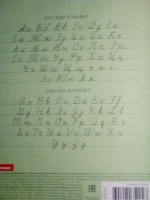 РУССКИЙ АЛФАВИТ
Аа Бб Вв Гг Дд Ее
Ёё Жж Зз Ии Йй Кк
Лл Мм Нн Оо Пп Рр
Сс Тт Уу Фф Хх Цц
Чч Шш Щщ ъ ы ь
Ээ Юю Яя
ENGLISH ALPHABET
Aa Bb Cc Dd Ee Ff
Gg Hh Ii Jj Kk Ll
Mm Nn Oo Pp Qq Rr
Ss Tt Uu Vv Ww Xx
Yy Zz